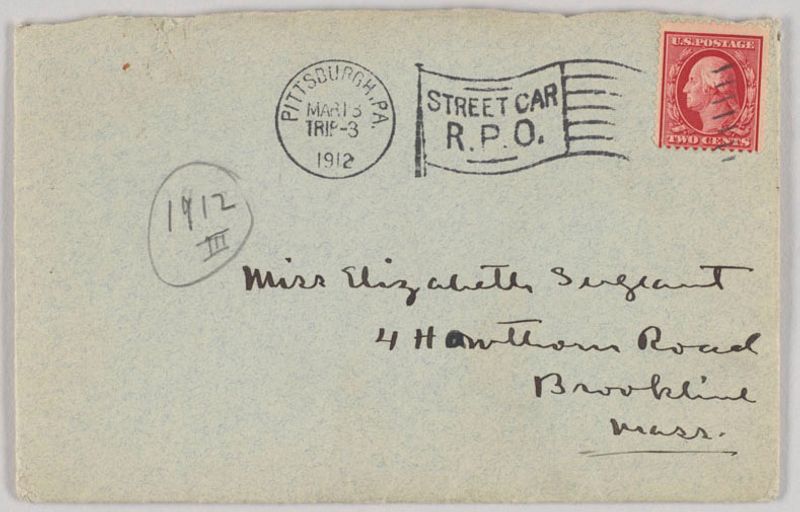 PITTSBURGH, PA.
MAR 13
TRIP-3
1912
STREET CAR
R.P.O.
U.S. POSTAGE
TWO CENTS
1912
III
Miss Elizabeth Sergeant
4 Hawthorn Road
Brookline
Mass.